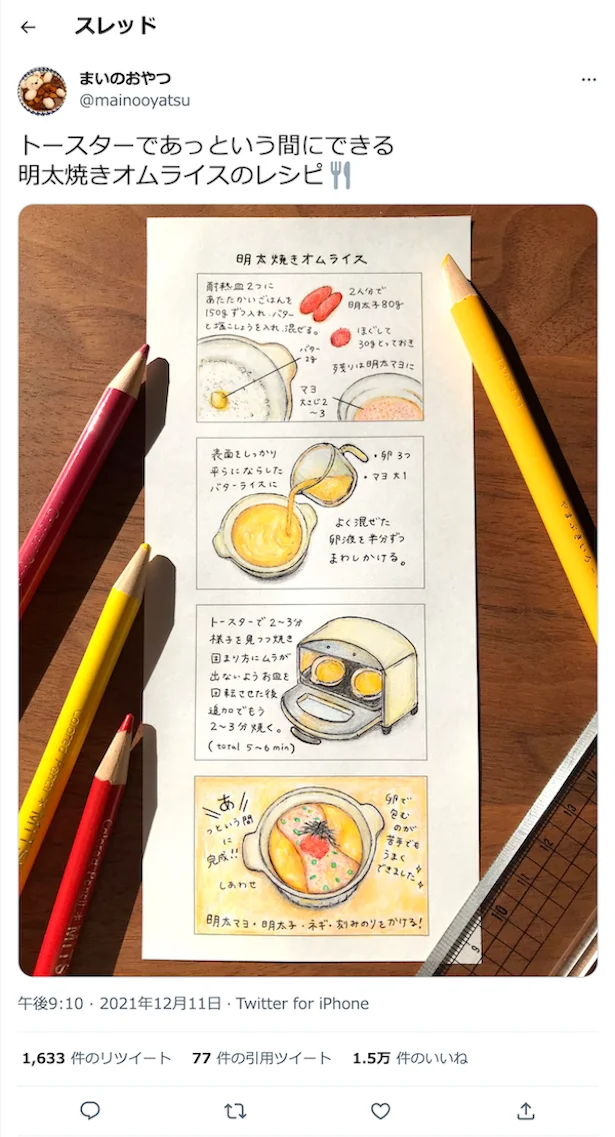 スレッド
まいのおやつ
@mainooyatsu
トースターであっという間にできる
明太焼きオムライスのレシピ🍴
明太焼きオムライス
耐熱皿2つに
あたたかいごはんを
150gずつ入れ、バター
と塩こしょうを入れ、混ぜる。
2人分で
明太子80g
ほぐして
30gとっておき
残りは明太マヨに
バター
マヨ
大さじ2
〜3
表面をしっかり
平らにならした
バターライスに
・卵3つ
・マヨ大1
よく混ぜた
卵液を半分ずつ
まわしかける。
トースターで2〜3分
様子を見つつ焼き
固まり方にムラが
出ないようお皿を
回転させた後
追加でもう
2〜3分焼く。
(total 5〜6min)
あ
っという間
に
完成!!
しあわせ
卵で
包む
のが
苦手でも
うまく
できました
明太マヨ・明太子・ネギ・刻みのりをかける!
やまぶきいろ
Colored Pencil ✳ MITS
Colored Pencil ✳ MITS
9
10
11
12
13
午後9:10 · 2021年12月11日 · Twitter for iPhone
1,633 件のリツイート 77 件の引用ツイート 1.5万 件のいいね